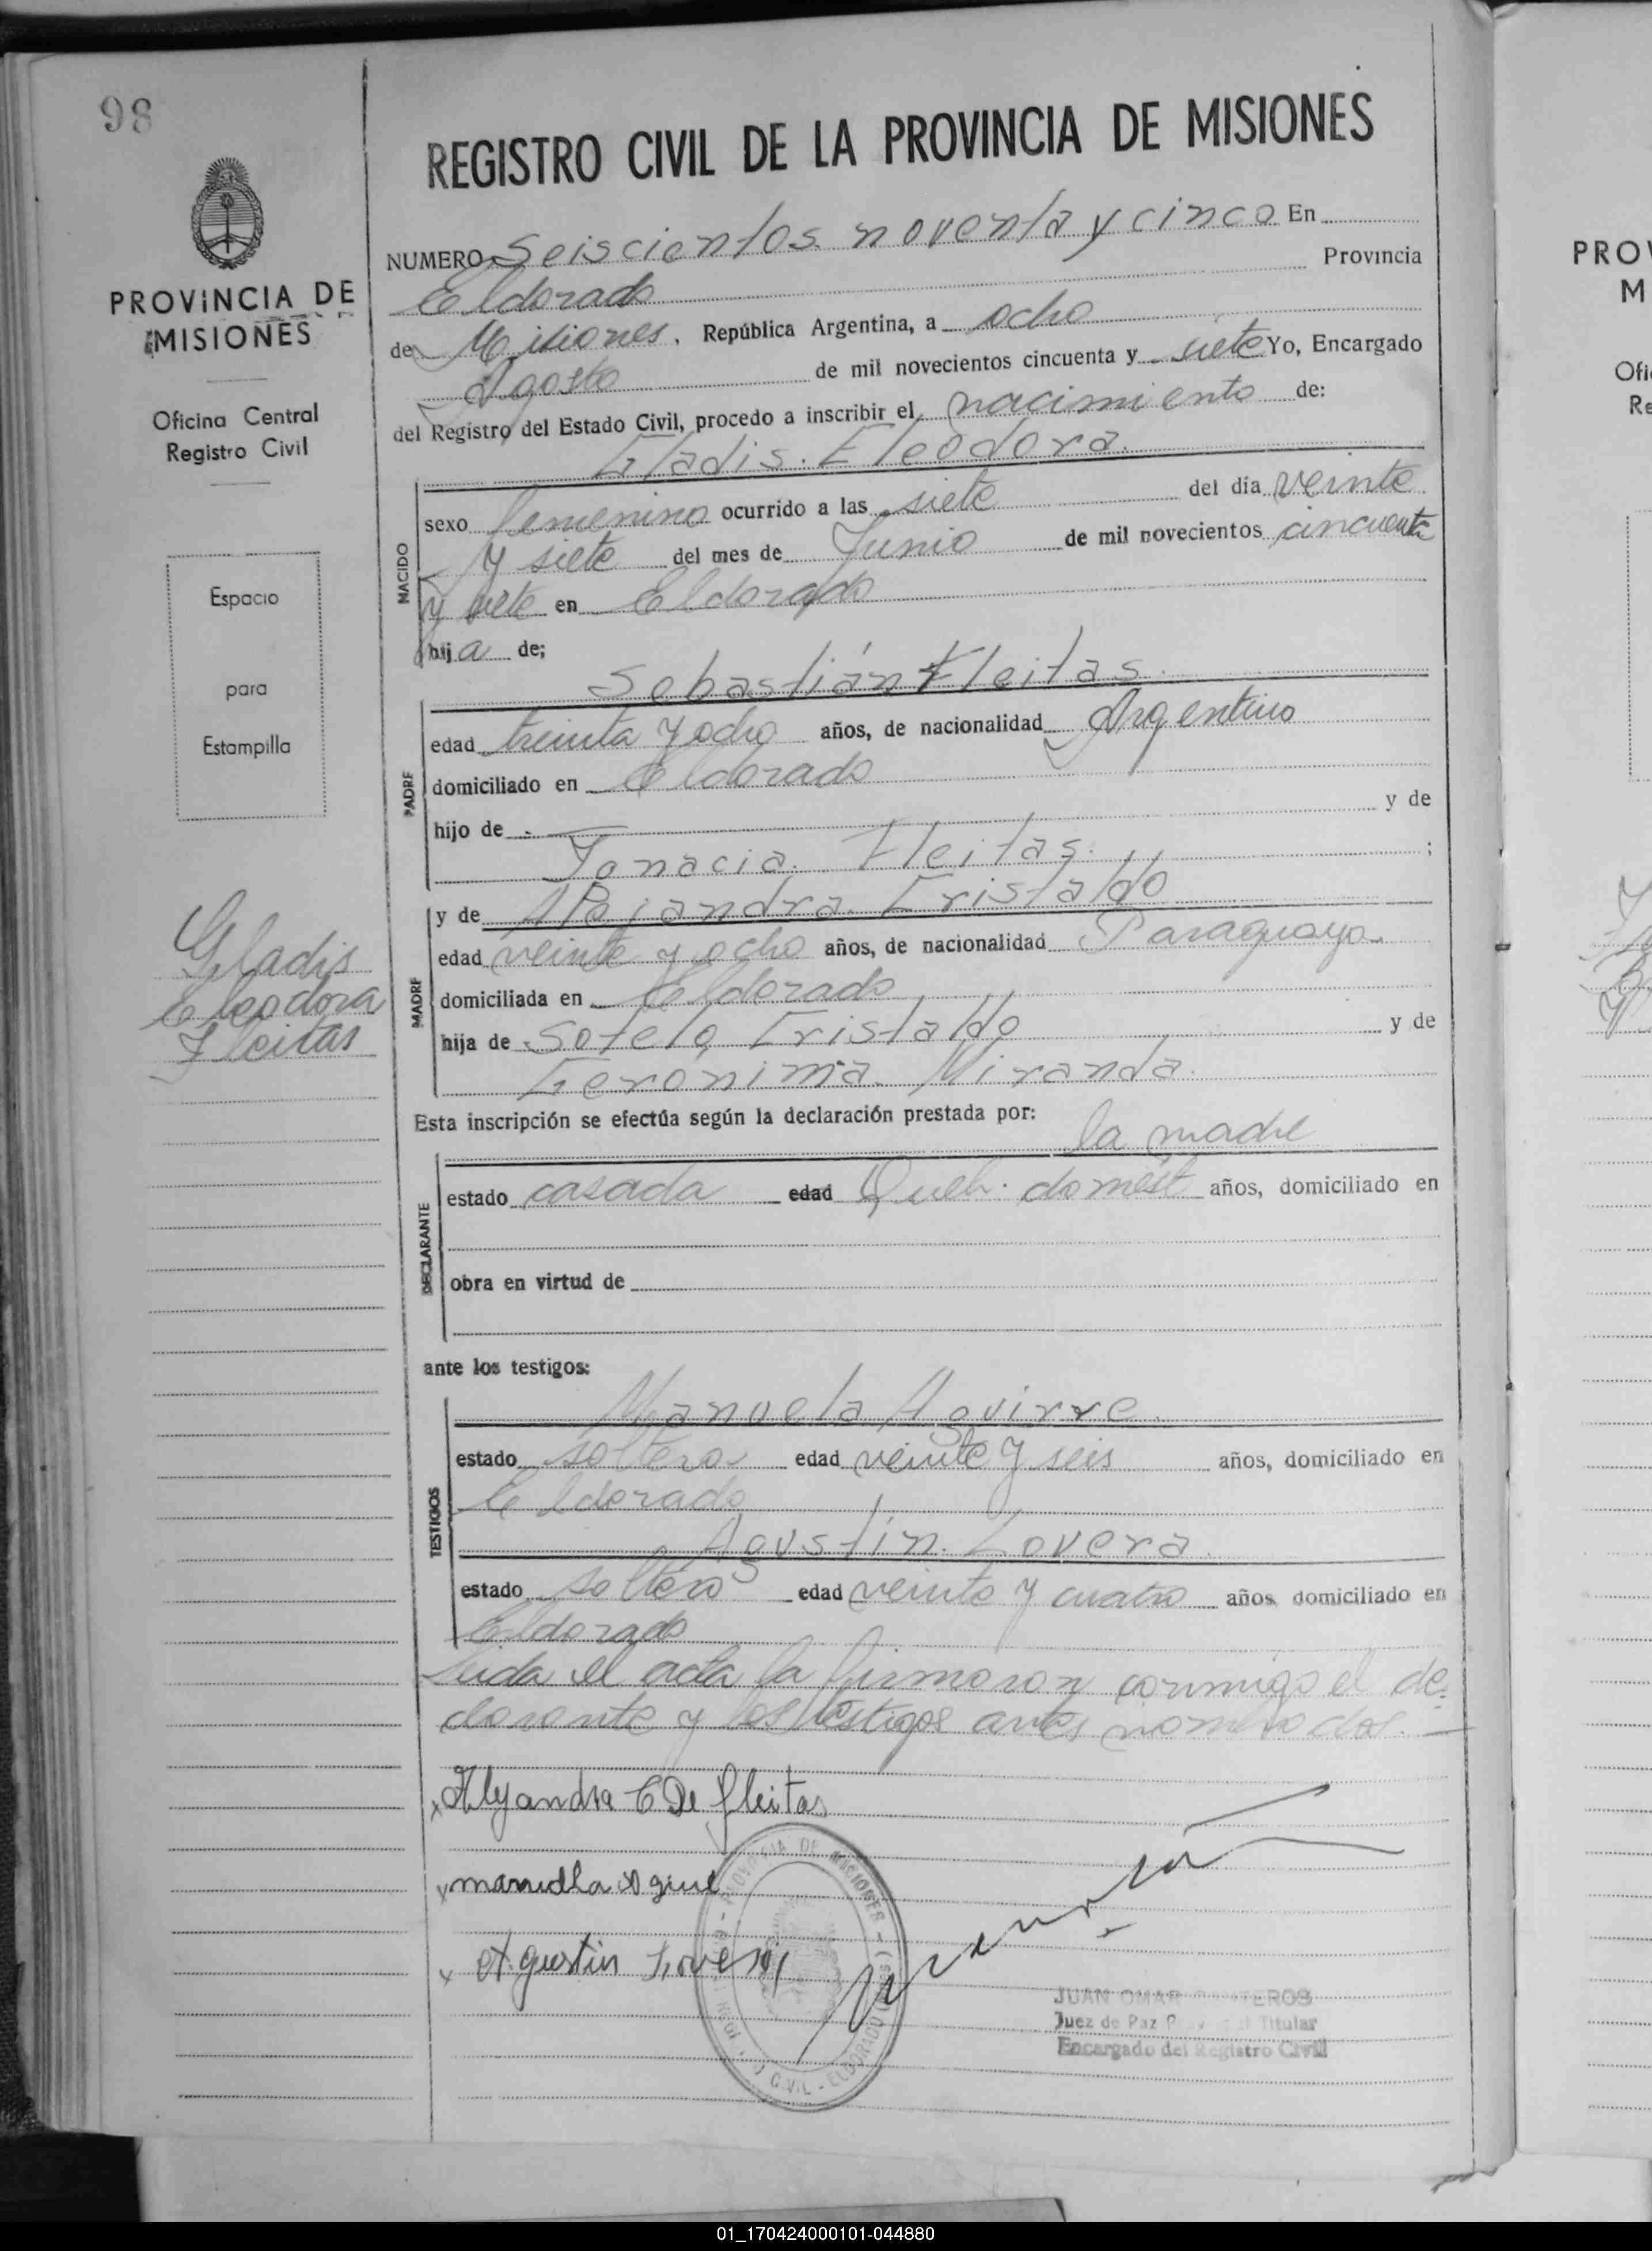 98
REGISTRO CIVIL DE LA PROVINCIA DE MISIONES
PROVINCIA DE
MISIONES
Oficina Central
Registro Civil
Espacio
para
Estampilla
Gladis
Eleodora
Fleitas
NUMERO Seiscientos noventa y cinco En
Eldorado Provincia
de Misiones, República Argentina, a ocho
Agosto de mil novecientos cincuenta y siete Yo, Encargado
del Registro del Estado Civil, procedo a inscribir el nacimiento de:
Gladis. Eleodora.
NACIDO
sexo femenino ocurrido a las siete del día veinte
y siete del mes de Junio de mil novecientos cincuenta
y siete en Eldorado
hija de;
Sebastián Fleitas.
PADRE
edad treinta y ocho años, de nacionalidad Argentino
domiciliado en Eldorado
hijo de - y de
Ignacia. Fleitas. ;
MADRE
y de Alejandra Cristaldo
edad veinte y ocho años, de nacionalidad Paraguaya
domiciliada en Eldorado
hija de Sotelo Cristaldo y de
Geronima. Miranda.
Esta inscripción se efectúa según la declaración prestada por:
la madre
DECLARANTE
estado casada edad Queh. domést años, domiciliado en
obra en virtud de
ante los testigos:
TESTIGOS
Manuela Aguirre.
estado soltera edad veinte y seis años, domiciliado en
Eldorado
Agustín. Lovera.
estado soltero edad veinte y cuatro años, domiciliado en
Eldorado
Leida el acta la firmaron conmigo el de-
clarante y los testigos antes nombrados.
x Alejandra C De fleitas
x
x Agustin
PROVINCIA DE MISIONES
CIVIL - ELDORADO
JUAN OMAR
Juez de Paz Titular
Encargado del Registro Civil
PROV
M
Ofi
Re
01_170424000101-044880